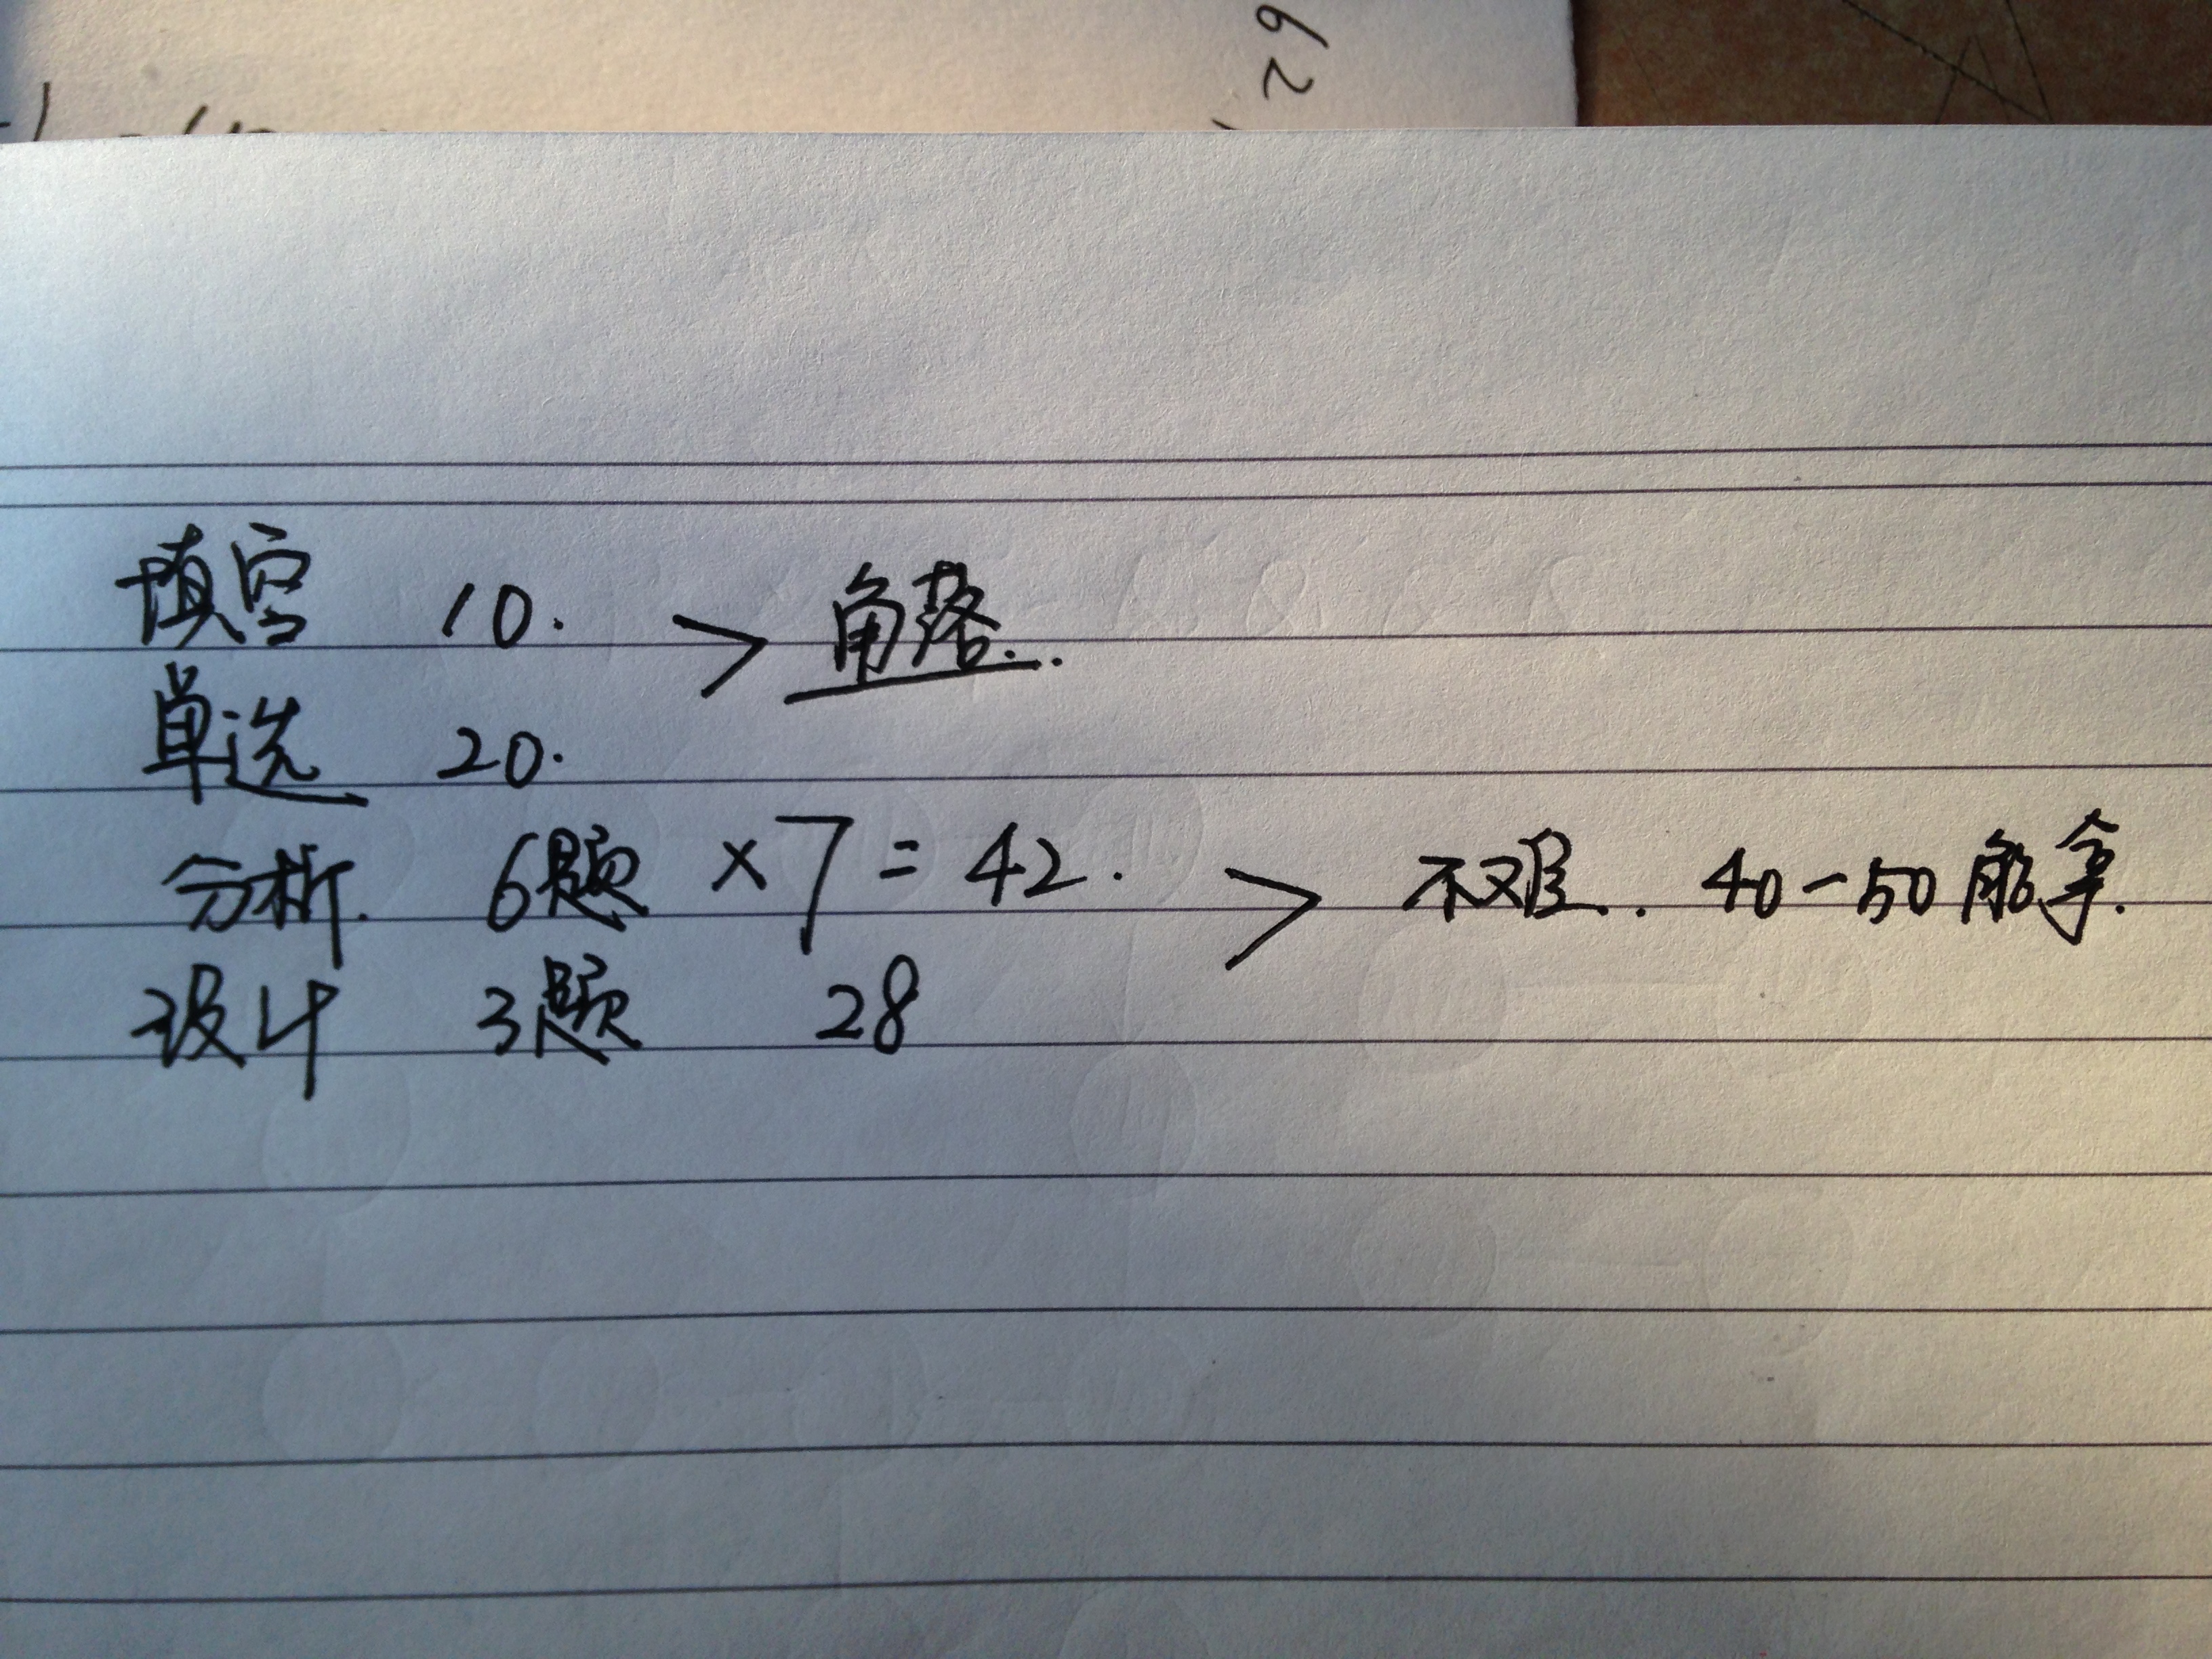 62
填空 10. > 角落..
单选 20.
分析. 6题 ×7=42. > 不难.. 40-50能拿.
设计 3题 28